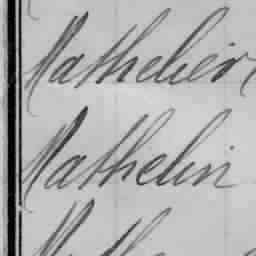 Mathelier
Mathelin